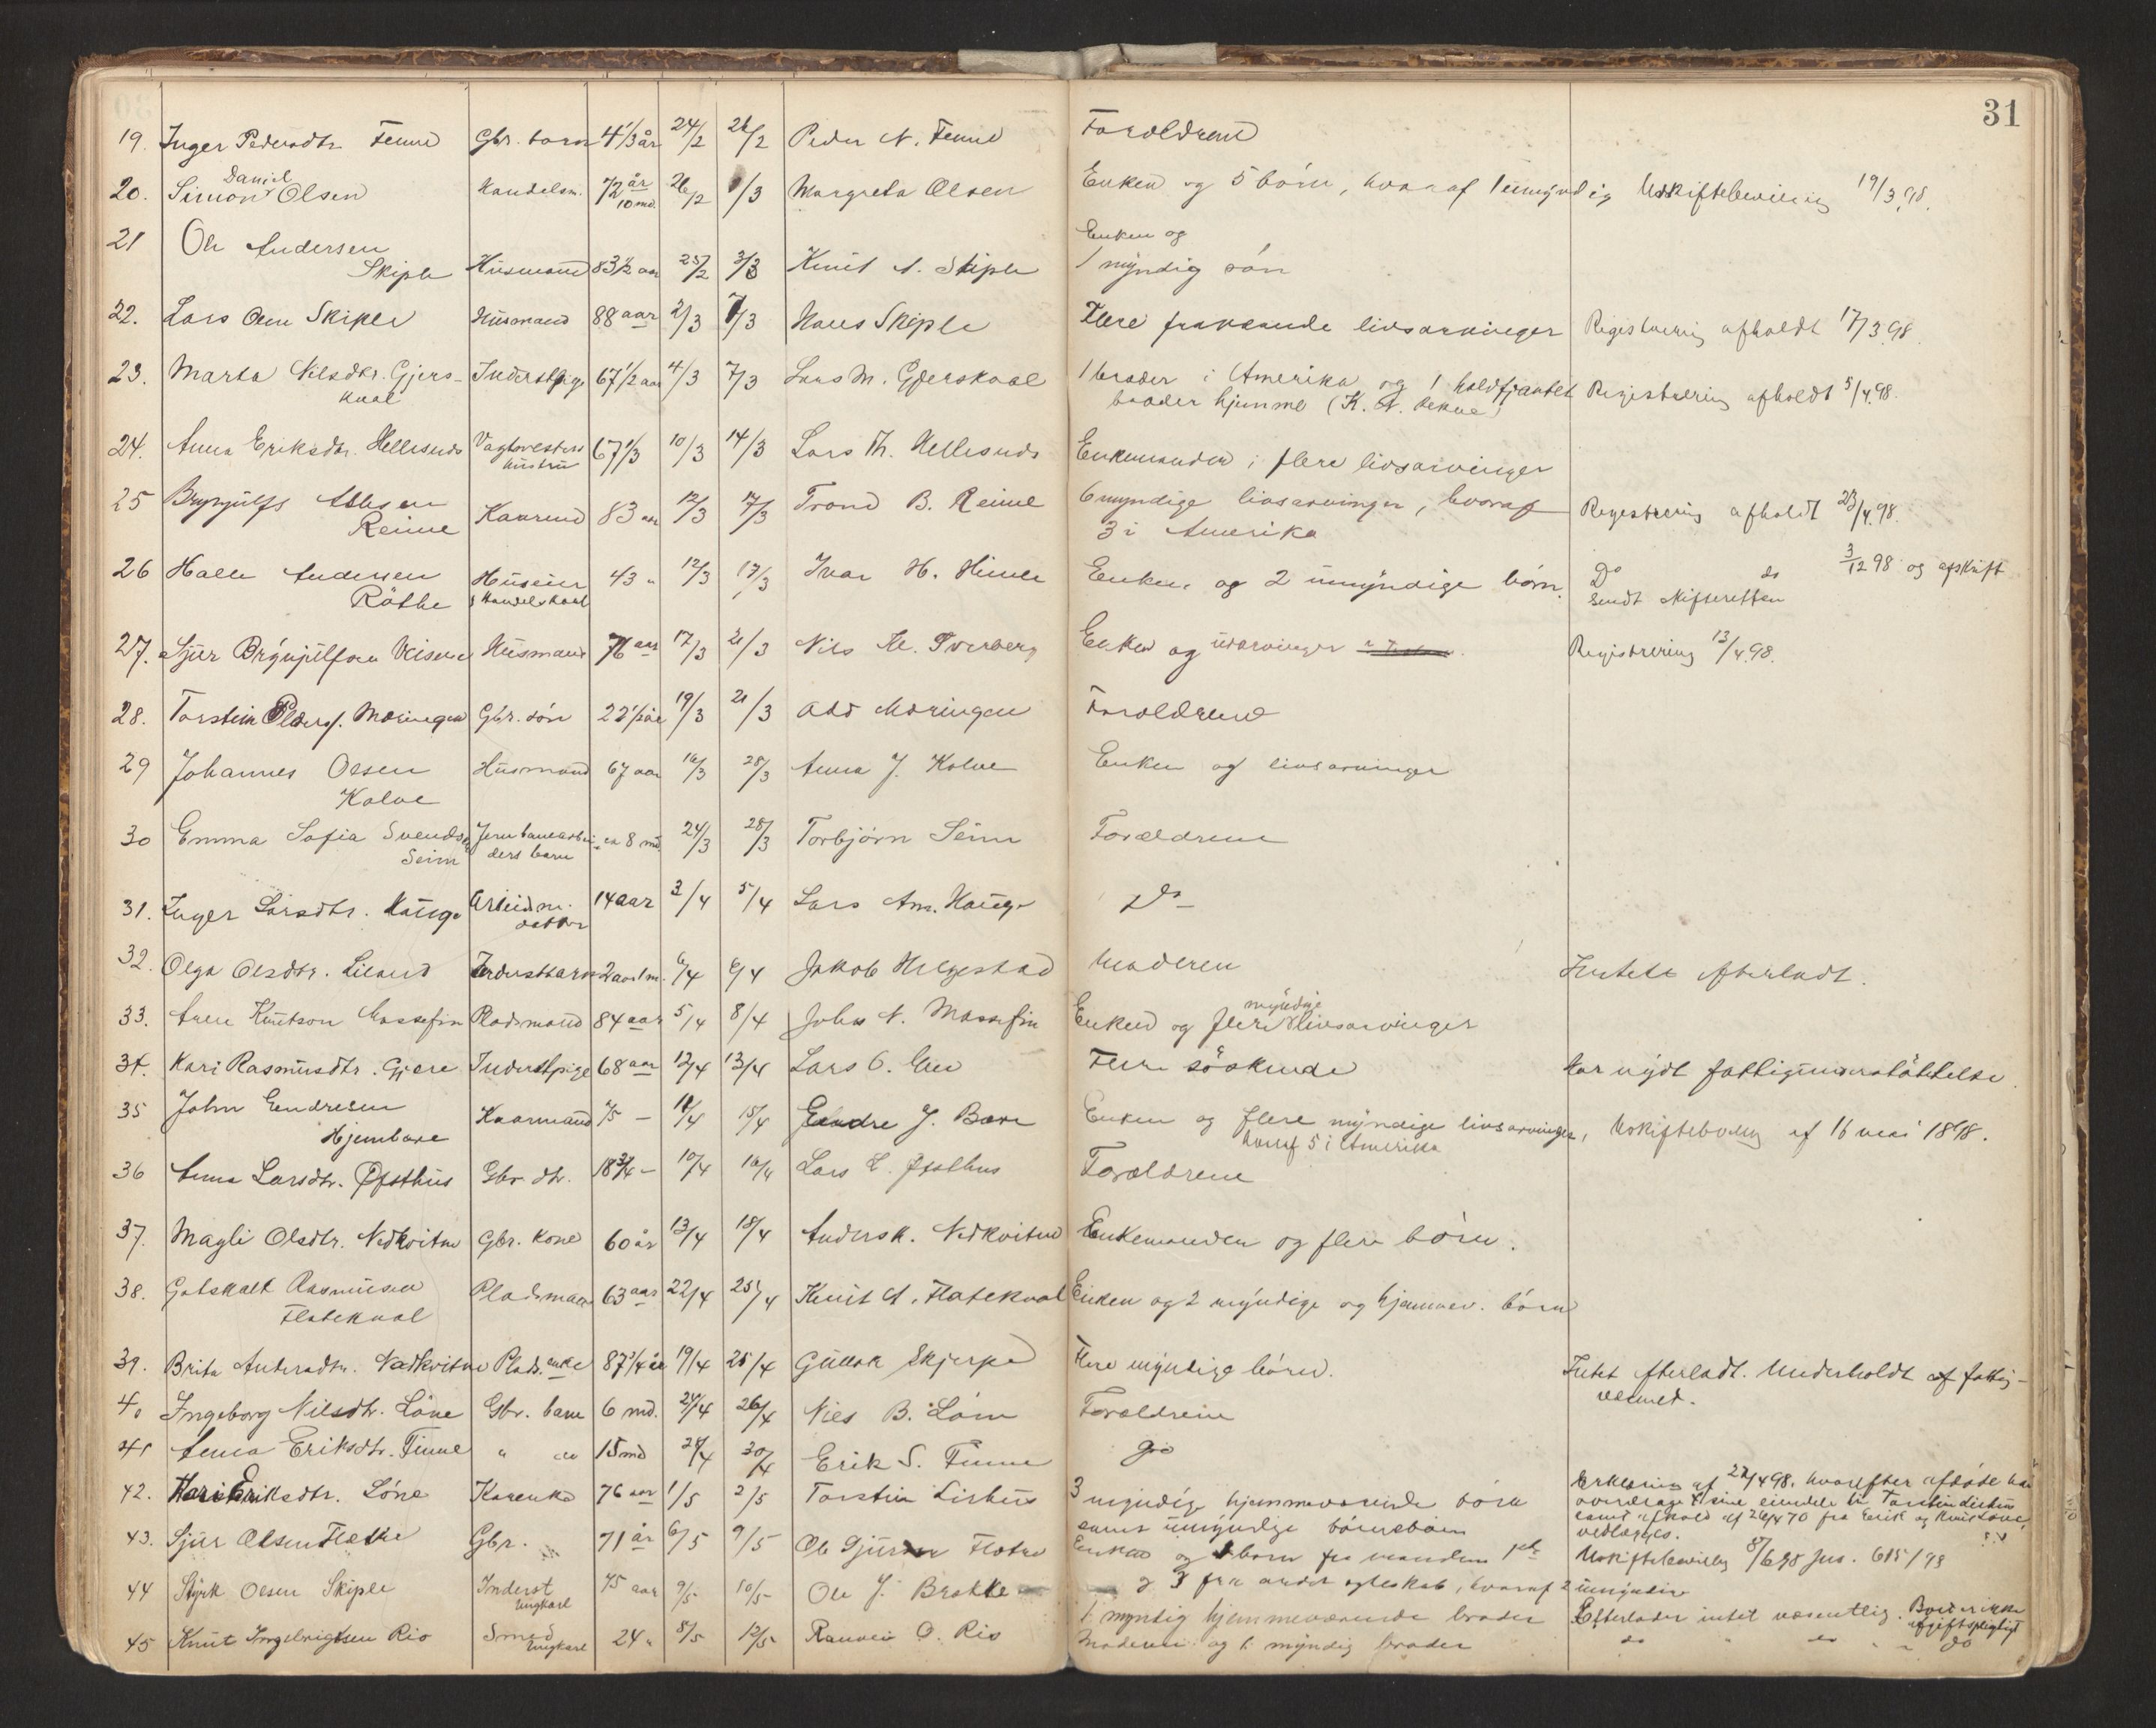 31
19. Inger Pedersdtr Femre Gbr. barn 4 1/3 år 24/2 26/2 Peder N. Femre Forældrene
20. Simon Daniel Olsen Handelsm. 72 år 10 md. 26/2 /3 Margreta Olsen Enken og 5 börn, hvoraf 1 umyndig Uskiftebevilling 19/3 98.
21 Ole Andersen Enken og
Skiple Husmand 83 1/2 aar 25/2 3/3 Knut A. Skiple 1 myndig sön
22. Lars Olsen Skiple Husmand 88 aar 2/3 7/3 Hans Skiple Flere fraværende livsarvinger Registrering afholdt 17/3 98.
23. Marta Nilsdtr. Gjers- Inderstpige 67 1/2 aar 4/3 7/3 Lars M. Gjerskval 1 broder i Amerika og 1 Registrering afholdt 5/4 98.
kval broder hjemme (K. N. Rekve)
24. Anna Eriksdtr. Hellesnds 67 1/3 10/3 14/3 Lars Th. Hellesnds Enkemanden i flere livsarvinger
hustru
25 Brynjulf 12/3 17/3 Trond B. Reime 6 myndige livsarvinger, hvoraf Registrering afholdt 23/4 98.
Reime 83 aar 3 i Amerika
26 Halle Andersen Huseier 43 " 12/3 17/3 Ivar H. Himle Enken og 2 umyndige börn. Do do 3/12 98 og afskrift
Röthe sendt skifteretten
27. Sjur Brynjulfsen Husmand 76 aar 17/3 21/3 Nils Tverberg Enken og utarvinger Registrering 13/4 98.
28. Torstein Mæringen Gbr. sön 22 1/2 år 19/3 21/3 Odd Mæringen Forældrene
29 Johannes Olsen Husmand 67 aar 16/3 28/3 Anna J. Kolve Enken og livsarvinger
Kolve
30 Emma Sofia Svendsen Jernbanearbei- ca 8 md. 24/3 28/3 Torbjörn Seim Forældrene
Seim ders barn
31. Inger Larsdtr. Hauge Arbeidm. 14 aar 3/4 5/4 Lars Am. Hauge Do
datter
32. Olga Olsdtr. Liland Inderstbarn 2 aar 1 m. 6/4 6/4 Jakob Helgestad Moderen Intet efterladt.
33. Knutson Massefin Pladsmand 84 aar 5/4 8/4 John N. Massefin Enken og flere myndige livsarvinger
34. Kari Rasmusdtr. Gjere Inderstpige 68 aar 12/4 13/4 Lars O. Flere söskende Har nydt fattigunderstöttelse.
35 John Endresen Kaarmand 75 - 11/4 15/4 Endre J. Enken og flere myndige livsarvinger, Uskiftebevilling af 16 mai 1898.
Hjembære hvoraf 5 i Amerika
36 Anna Larsdtr. Øfsthus Gbr. dtr. 18 3/4 - 10/4 16/4 Lars L. Øfsthus Forældrene
37. Magli Olsdtr. Nedkvitne Gbr. kone 60 år 13/4 18/4 Anders K. Nedkvitne Enkemanden og flere börn.
38. Gotskalk Rasmusen Pladsmand 63 aar 22/4 25/4 Knut A. Flatekval Enken og 2 myndige og hjemmev. börn
Flatekval
39. Brita Andersdtr. Nedkvitne Plads. enke 87 1/4 år 19/4 25/4 Gullak Skjerpe Flere myndige börn. Intet efterladt. Underholdt af fattig-
væsenet.
40 Ingeborg Nilsdtr. Löne Gbr. barn 6 md. 24/4 26/4 Nils B. Löne Forældrene
41 Anna Eriksdtr. Finne " do 15 md 28/4 30/4 Erik S. Finne do
42. Eriksdtr. Löne Kaarenke 76 aar 1/5 2/5 Torstein Lirhus 3 myndige hjemmeværende börn Erklæring af 27/4 98. hvorefter afdöde har
samt umyndige börnebörn overdraget sine eiendele til Torstein Lirhus
vedlægges.
43. Sjur Olsen Flatke Gbr. 71 år 6/5 9/5 Ole Enken og börn fra Uskiftebevilling 8/6 98 Jno. 615/98
og 3 fra andet egteskab, hvoraf 2 umyndige
44 Styrk Olsen Skiple Inderst 75 aar 9/5 10/5 Ole J. Brekke 1 myndig hjemmeværende broder Efterlader intet væsentlig. Boet er ikke
Ungkarl afgiftspligtigt
45 Knut Ingebrigtsen Rio Smed 24 " 8/5 12/5 Ranvei O. Rio Moderen og 1 myndig broder do " do " " do
Ungkarl